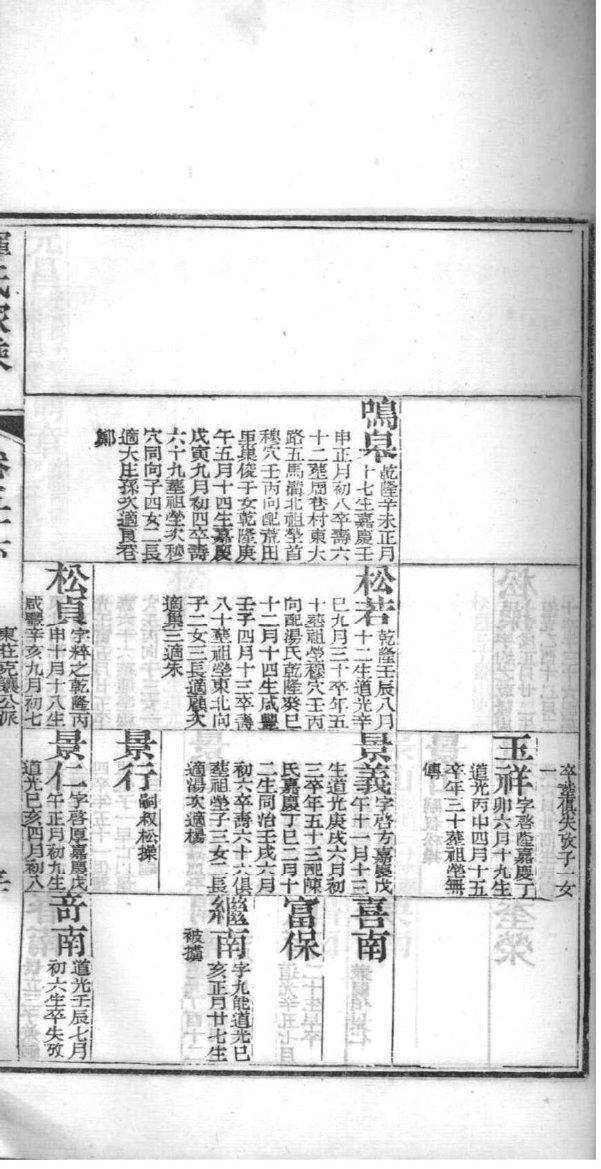 鳴臯
乾隆辛未正月
十七生嘉慶壬
申正月初八卒壽六
十二葬周巷村東大
路五馬灣北祖塋首
穆穴壬丙向配荒田
里巢俊于女乾隆庚
午五月十四生嘉慶
戊寅九月初四卒壽
六十九葬祖塋次穆
穴同向子四女二長
適大庄孫次適良巷
鄭
松若
乾隆壬辰八月
十二生道光辛
巳九月三十卒年五
十葬祖塋穆穴壬丙
向配湯氏乾隆癸巳
十二月十四生咸豐
壬子四月十三卒壽
八十葬祖塋東北向
子二女三長適顧次
適巢三適朱
松貞
字粹之乾隆丙
申十月十八生
咸豐辛亥九月初七
卒葬俱失攷子一女
一
玉祥
字啓隆嘉慶丁
卯六月十九生
道光丙申四月十五
卒年三十葬祖塋無
傳
景義
字啓方嘉慶戊
午十一月十三
生道光庚戌六月初
三卒年五十三配陳
氏嘉慶丁巳二月十
二生同治壬戌六月
初六卒壽六十六俱
葬祖塋子三女二長
適湯次適楊
景行
嗣叔松操
景仁
字啓厚嘉慶戊
午正月初九生
道光己亥四月初八
喜南
富保
繼南
字九能道光己
亥正月廿七生
被擄
奇南
道光壬辰七月
初六生卒失攷
家乘
東莊克讓公派